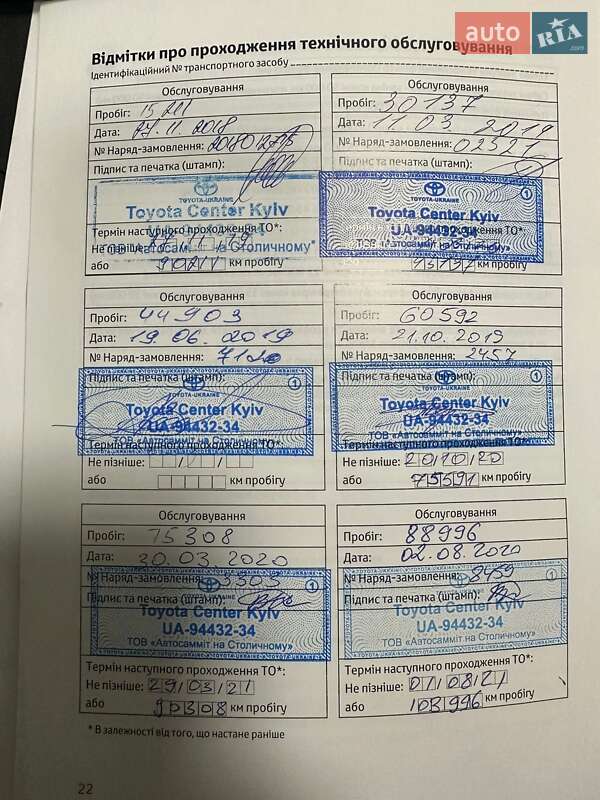 auto RIA .com
Відмітки про проходження технічного обслуговування
Ідентифікаційний № транспортного засобу
Обслуговування
Пробіг: 15211
Дата: 27.11.2018
№ Наряд-замовлення:
Підпис та печатка (штамп):
TOYOTA-UKRAINE
Toyota Center Kyiv
Термін наступного проходження ТО*:
або км пробігу
Обслуговування
Пробіг: 30137
Дата: 11.03.2019
№ Наряд-замовлення: 02521
Підпис та печатка (штамп):
TOYOTA-UKRAINE
Toyota Center Kyiv
UA-94432-34
ТОВ «Автосамміт на Столичному»
45137 км пробігу
Обслуговування
Пробіг: 44903
Дата: 19.06.2019
№ Наряд-замовлення:
Підпис та печатка (штамп):
TOYOTA-UKRAINE
Toyota Center Kyiv
UA-94432-34
ТОВ «Автосамміт на Столичному»
Термін наступного проходження ТО*:
Не пізніше: / /
або км пробігу
Обслуговування
Пробіг: 60592
Дата: 21.10.2019
№ Наряд-замовлення: 2457
Підпис та печатка (штамп):
TOYOTA-UKRAINE
Toyota Center Kyiv
UA-94432-34
ТОВ «Автосамміт на Столичному»
Термін наступного проходження ТО*:
Не пізніше: 20/10/20
або 75591 км пробігу
Обслуговування
Пробіг: 75308
Дата: 30.03.2020
№ Наряд-замовлення:
Підпис та печатка (штамп):
Toyota Center Kyiv
UA-94432-34
ТОВ «Автосамміт на Столичному»
Термін наступного проходження ТО*:
Не пізніше: 29/03/21
або 90308 км пробігу
Обслуговування
Пробіг: 88996
Дата: 02.08.2020
№ Наряд-замовлення: 8459
Підпис та печатка (штамп):
Toyota Center Kyiv
UA-94432-34
ТОВ «Автосамміт на Столичному»
Термін наступного проходження ТО*:
Не пізніше: 01/08/21
або 103996 км пробігу
* В залежності від того, що настане раніше
22